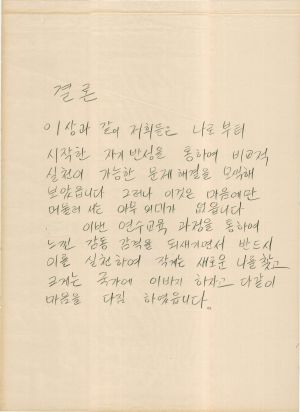 결론
이상과 같이 저희들은 나로부터
시작한 자기반성을 통하여 비교적
실천이 가능한 문제해결을 모색해
보았읍니다 그러나 이것은 마음에만
머물러서는 아무 의미가 없읍니다
이번 연수교육 과정을 통하여
느낀 감동 감격을 되새기면서 반드시
이를 실천하여 작게는 새로운 나를 찾고
크게는 국가에 이바지 하자고 다같이
마음을 다짐 하였읍니다.